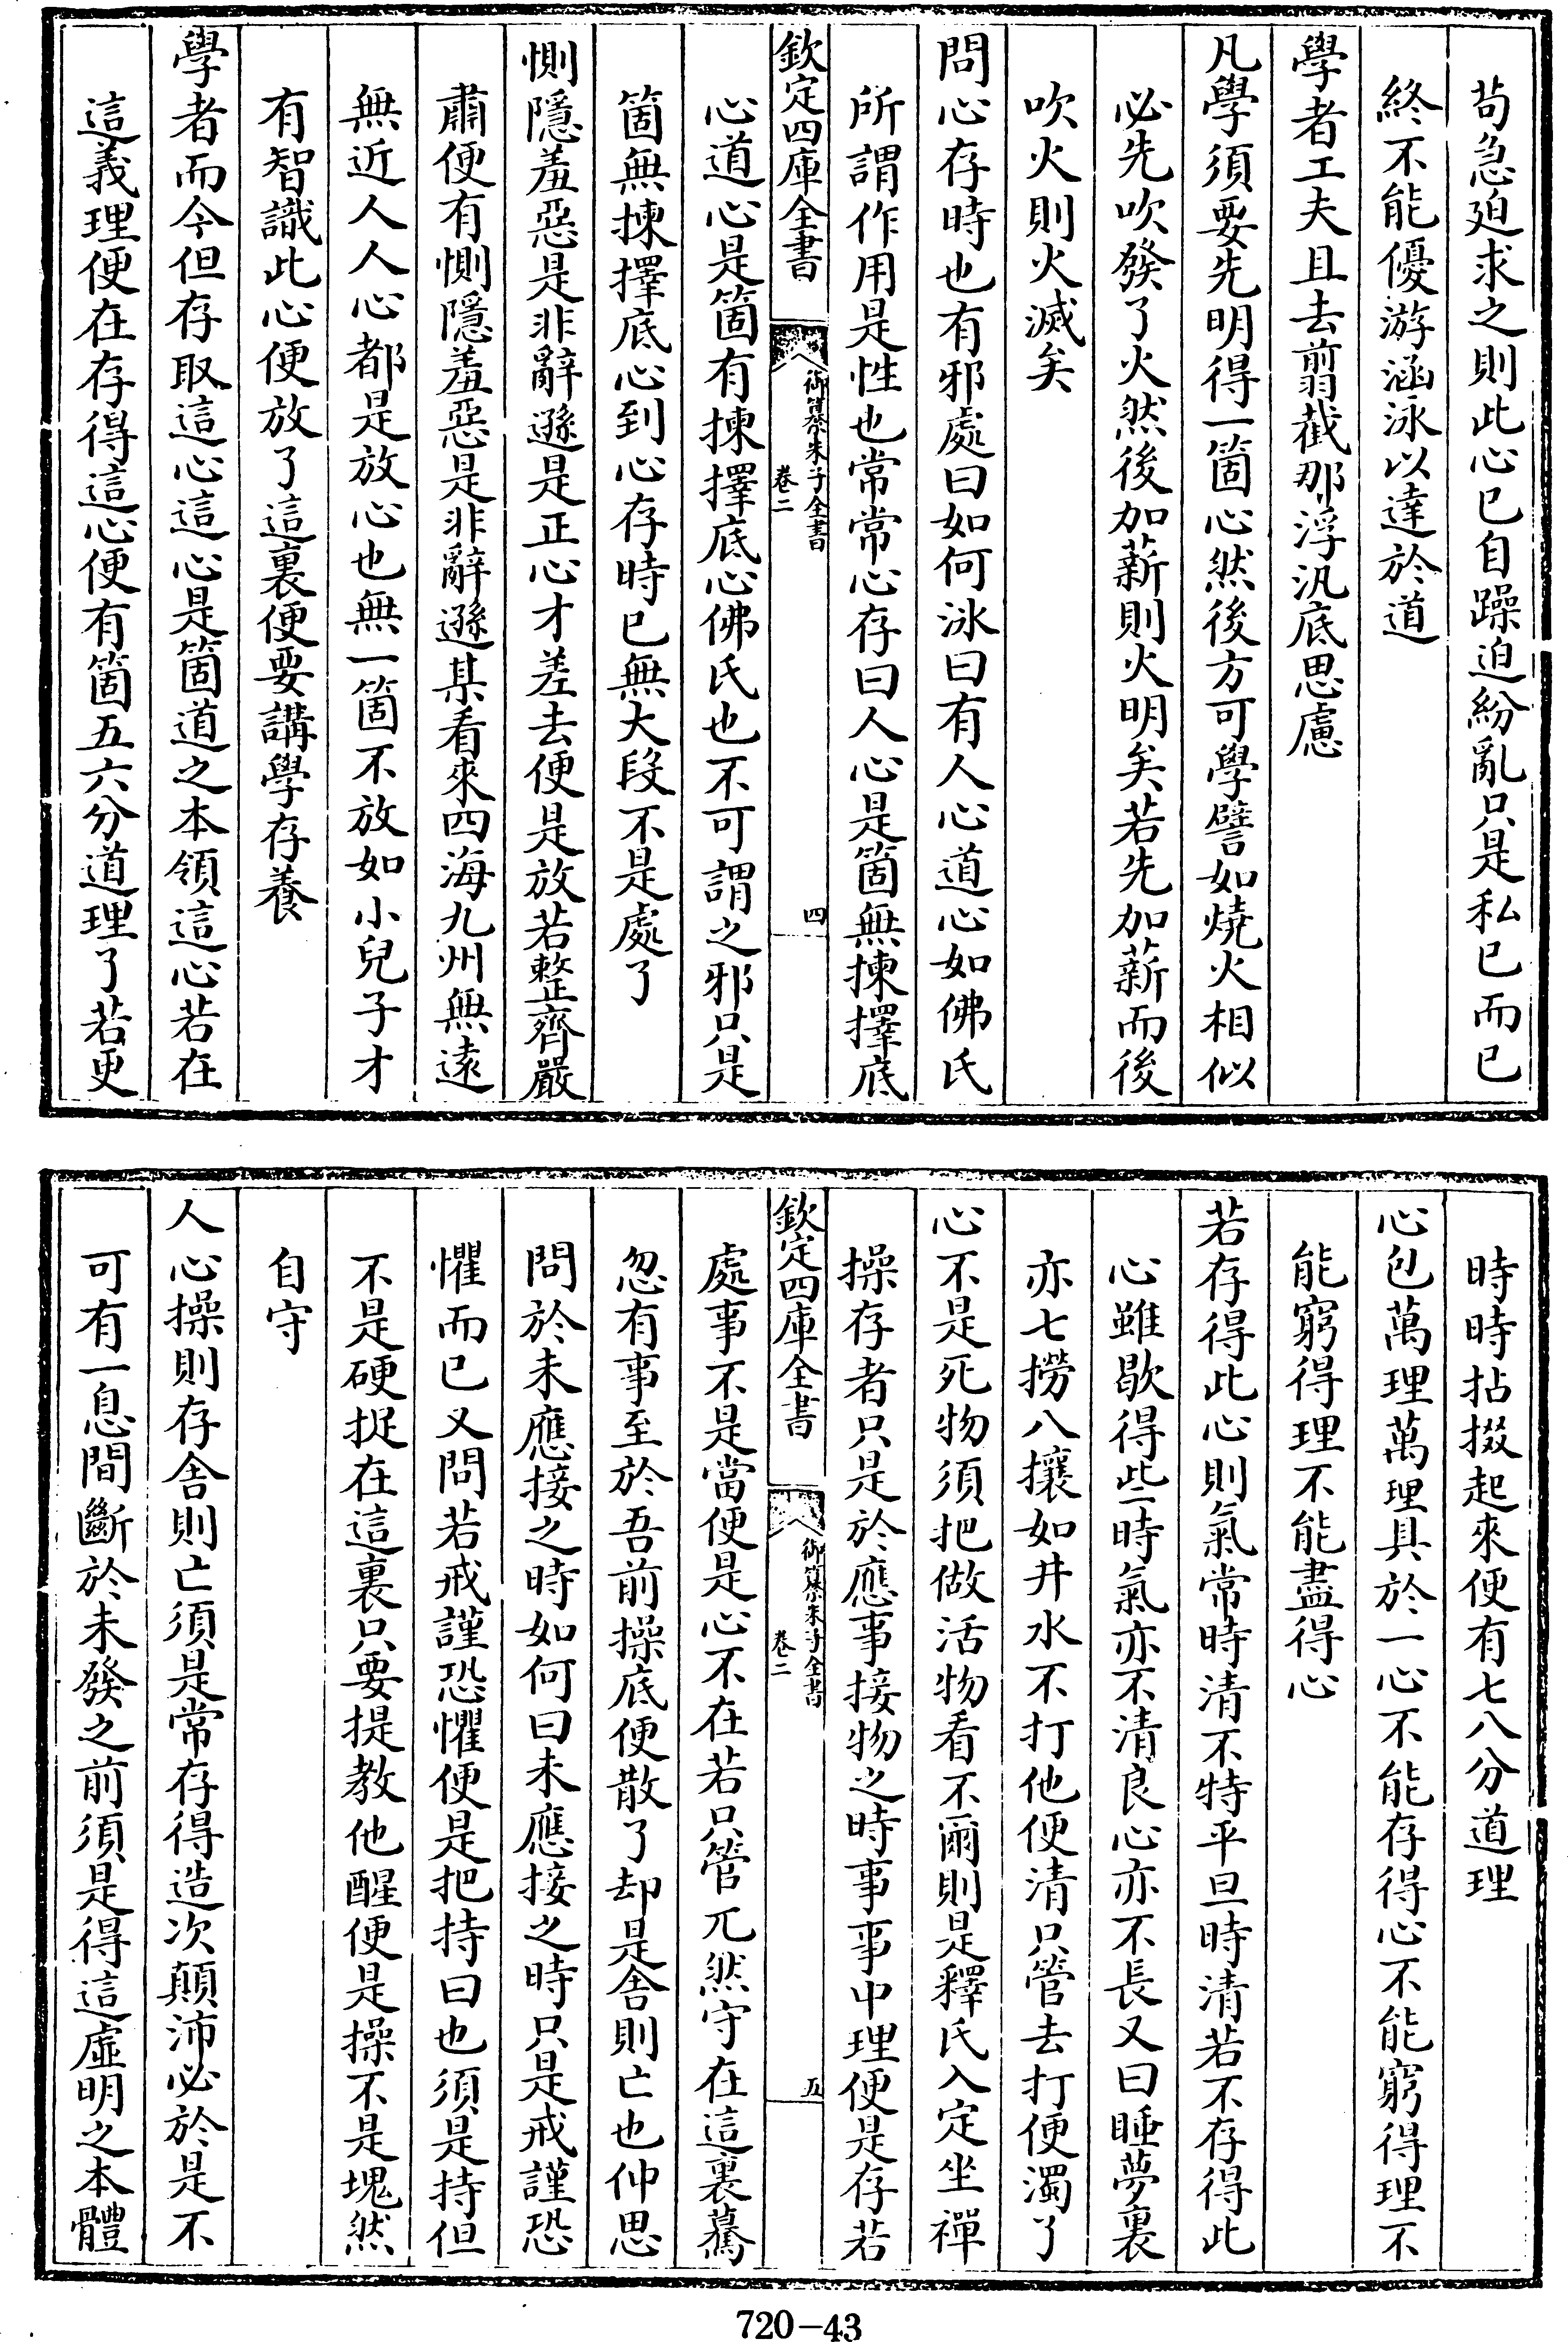 苟急迫求之則此心已自躁迫紛亂只是私已而已
終不能優游涵泳以達於道
學者工夫且去翦截那浮汎底思慮
凡學須要先明得一箇心然後方可學譬如燒火相似
必先吹發了火然後加薪則火明矣若先加薪而後
吹火則火滅矣
問心存時也有邪處曰如何泳曰有人心道心如佛氏
所謂作用是性也常常心存曰人心是箇無揀擇底
欽定四庫全書
御纂朱子全書
卷二
四
心道心是箇有揀擇底心佛氏也不可謂之邪只是
箇無揀擇底心到心存時已無大段不是處了
惻隱羞惡是非辭遜是正心才差去便是放若整齊嚴
肅便有惻隱羞惡是非辭遜某看來四海九州無遠
無近人人心都是放心也無一箇不放如小兒子才
有智識此心便放了這裏便要講學存養
學者而今但存取這心這心是箇道之本領這心若在
這義理便在存得這心便有箇五六分道理了若更
時時拈掇起來便有七八分道理
心包萬理萬理具於一心不能存得心不能窮得理不
能窮得理不能盡得心
若存得此心則氣常時清不特平旦時清若不存得此
心雖歇得些時氣亦不清良心亦不長又曰睡夢裏
亦七撈八攘如井水不打他便清只管去打便濁了
心不是死物須把做活物看不爾則是釋氏入定坐禪
操存者只是於應事接物之時事事中理便是存若
欽定四庫全書
御纂朱子全書
卷二
五
處事不是當便是心不在若只管兀然守在這裏驀
忽有事至於吾前操底便散了却是舍則亡也仲思
問於未應接之時如何曰未應接之時只是戒謹恐
懼而已又問若戒謹恐懼便是把持曰也須是持但
不是硬捉在這裏只要提教他醒便是操不是塊然
自守
人心操則存舍則亡須是常存得造次顛沛必於是不
可有一息間斷於未發之前須是得這虛明之本體
720-43